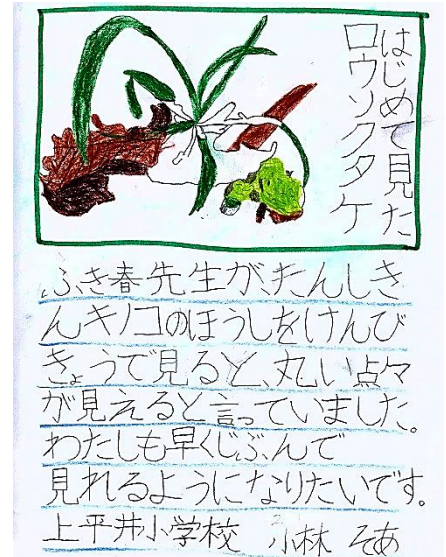 はじめて見た
ロウソクタケ
ふき春先生が、たんしき
んキノコのほうしをけんび
きょうで見ると、丸い点々
が見えると言っていました。
わたしも早くじぶんで
見れるようになりたいです。
上平井小学校 小林 そあ